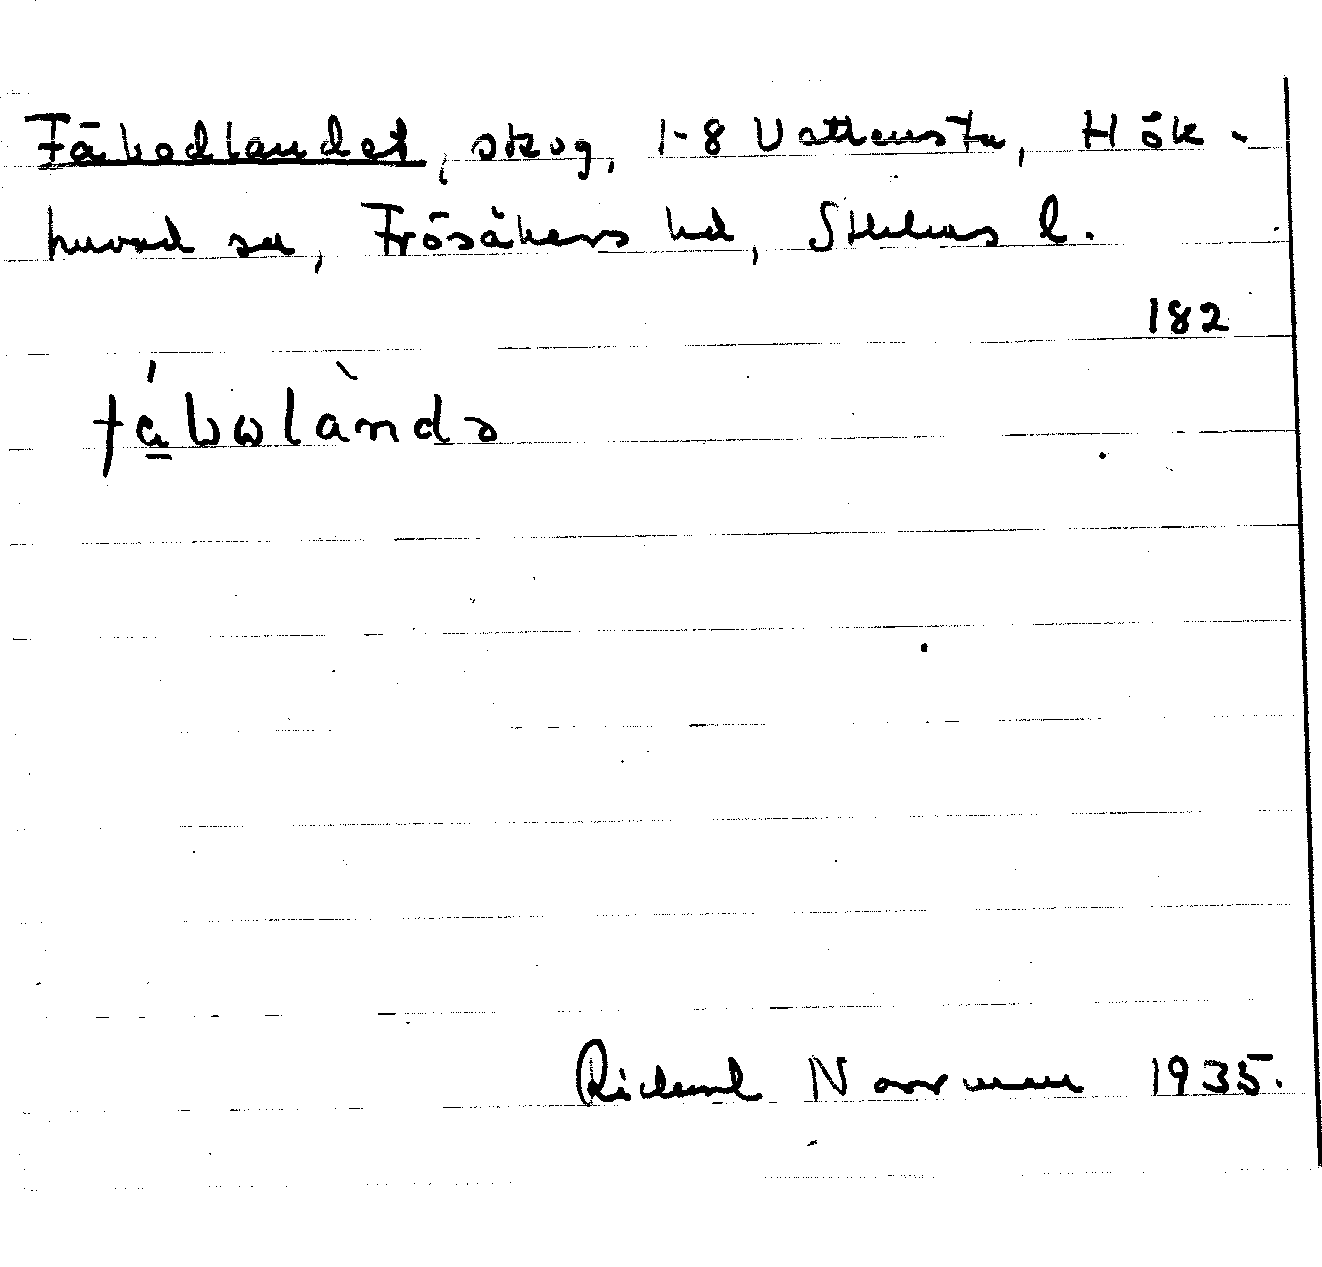 Fäbodlandet, skog, 1-8 Vattensta, Hök-
huvud sn, Frösåkers hd, Sthlms l.
182
fá̱bωlàndə
Richard Norrman 1935.